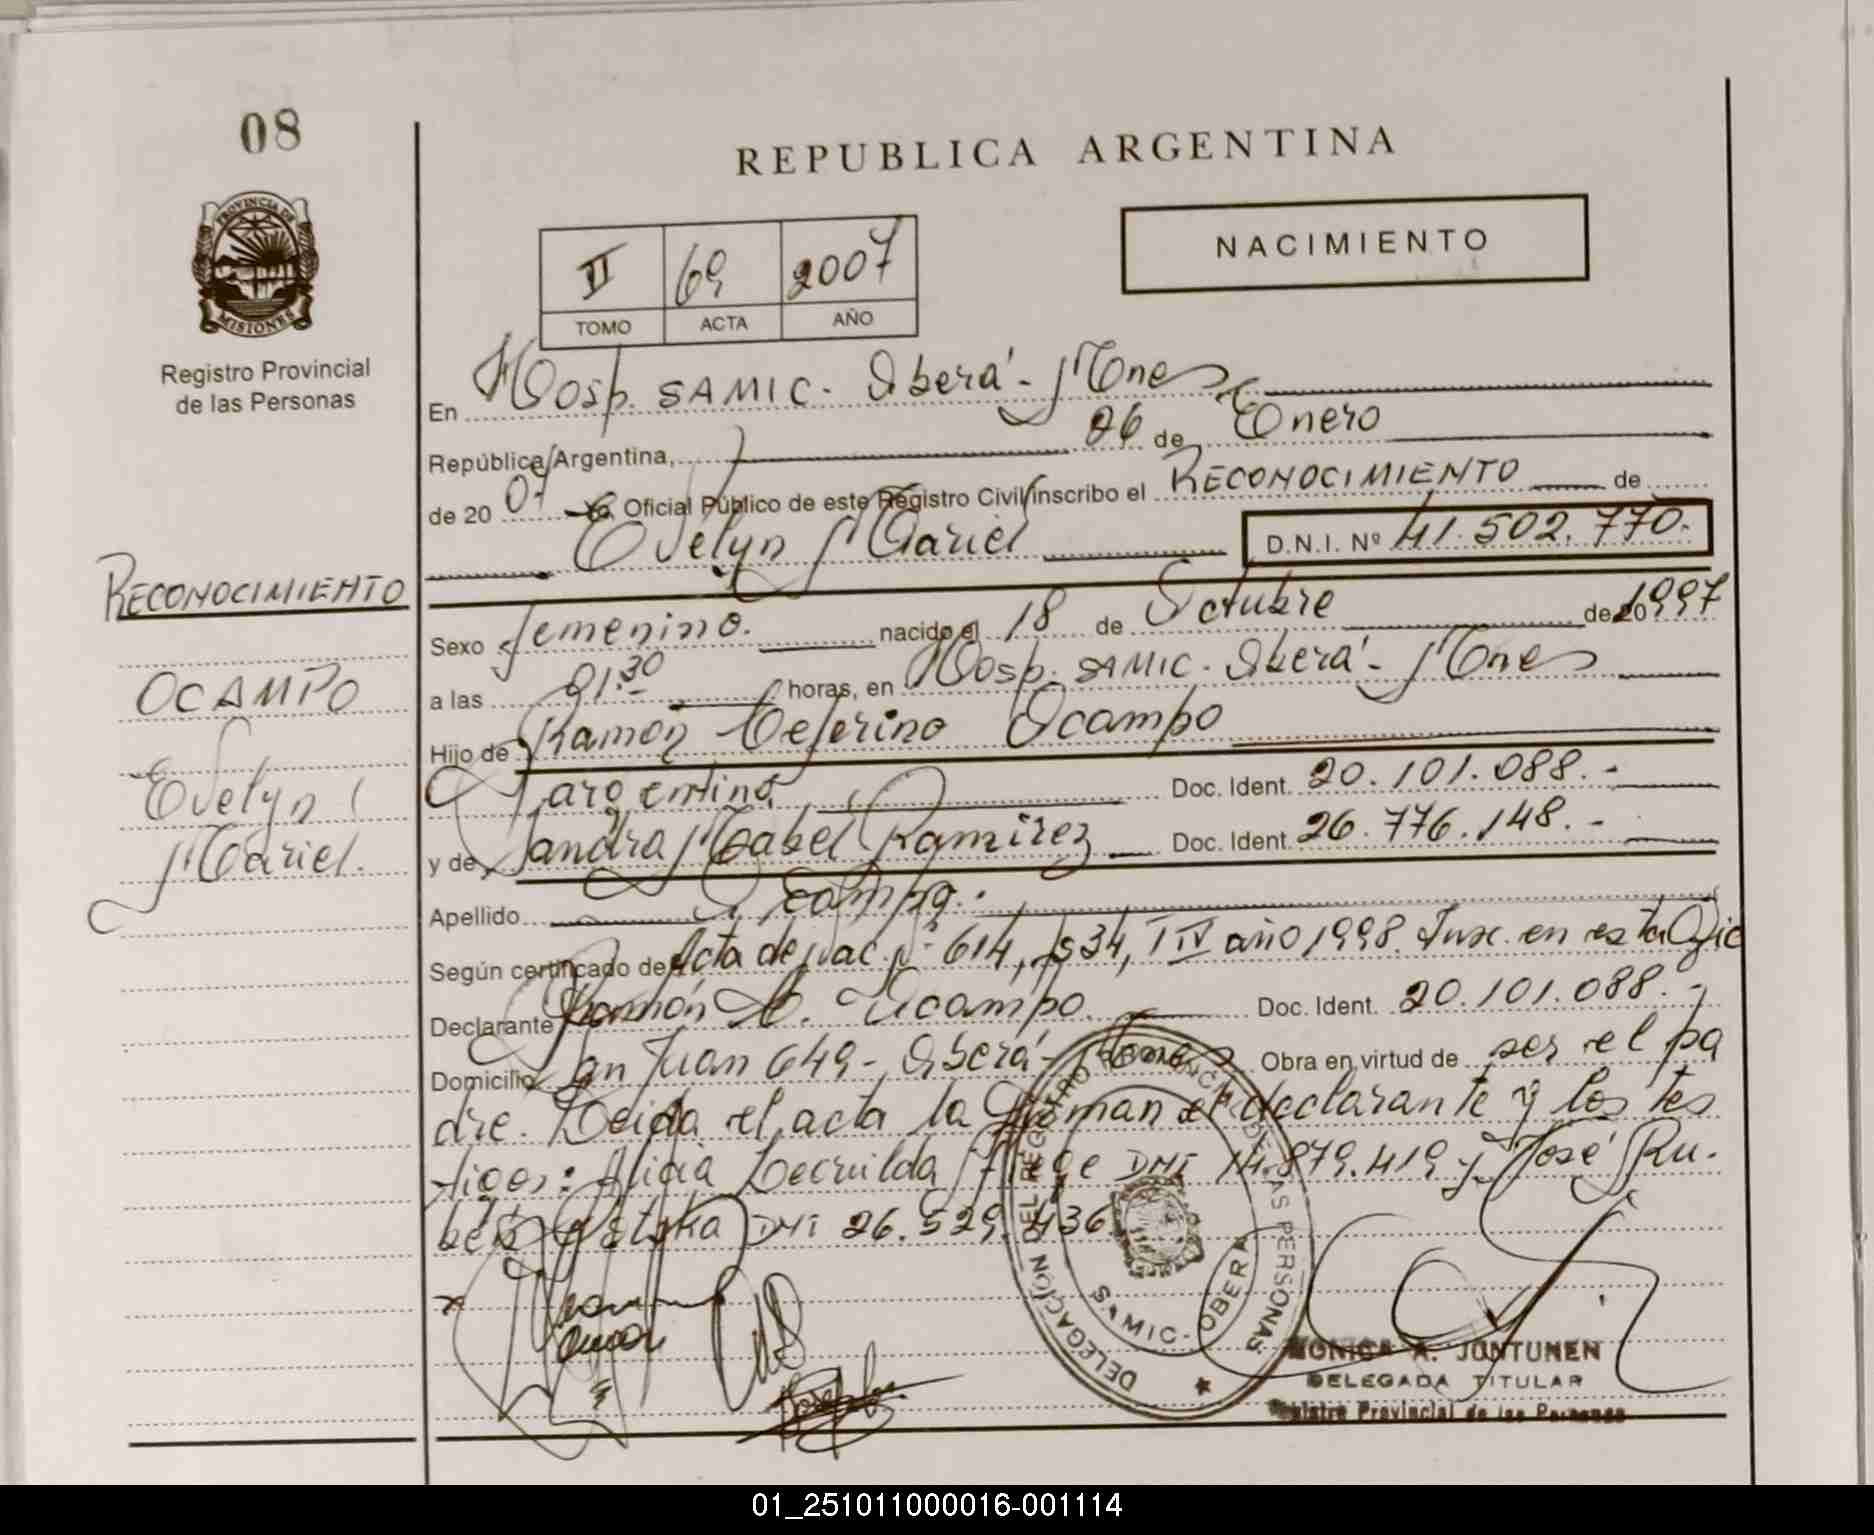 08
REPUBLICA ARGENTINA
PROVINCIA DE
MISIONES
Registro Provincial
de las Personas
II 69 2007
TOMO ACTA AÑO
NACIMIENTO
En Hosp. SAMIC. Oberá - Mnes
República Argentina, 06 de Enero
de 20 07 Oficial Público de este Registro Civil inscribo el RECONOCIMIENTO de
Evelyn Mariel D.N.I. Nº 41.502.770.
RECONOCIMIENTO
Sexo femenino. nacido el 18 de Octubre de 20 1997
a las 21.30 horas, en Hosp. SAMIC. Oberá - Mnes
OCAMPO
Hijo de Ramón Ceferino Ocampo
Evelyn
Mariel.
argentino Doc. Ident. 20.101.088.-
y de Sandra Mabel Ramirez Doc. Ident. 26.776.148.-
Apellido Ocampo.
Según certificado de Acta de Nac. Nº 614, Fº 34, T IV año 1998. Insc. en esta Ofic
Declarante Ramón C. Ocampo. Doc. Ident. 20.101.088.-
Domicilio San Juan 649 - Oberá - Mnes Obra en virtud de ser el pa
dre. Leida el acta la firman el declarante y los tes
tigos: Alicia DNI 14.879.419 y José Ru.
ben DNI 26.529.436
DELEGACIÓN DEL REGISTRO PROVINCIAL DE LAS PERSONAS
SAMIC - OBERA
MONICA A. JONTUNEN
DELEGADA TITULAR
Registro Provincial de las Personas
01_251011000016-001114